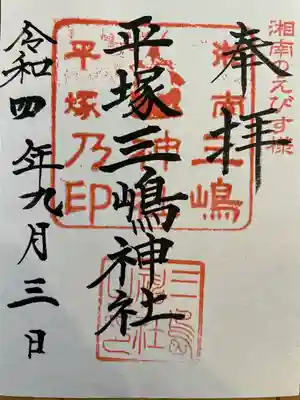 湘南のえびす様
奉拝
湘南三嶋
神
平塚乃印
平塚三嶋神社
令和四年九月三日